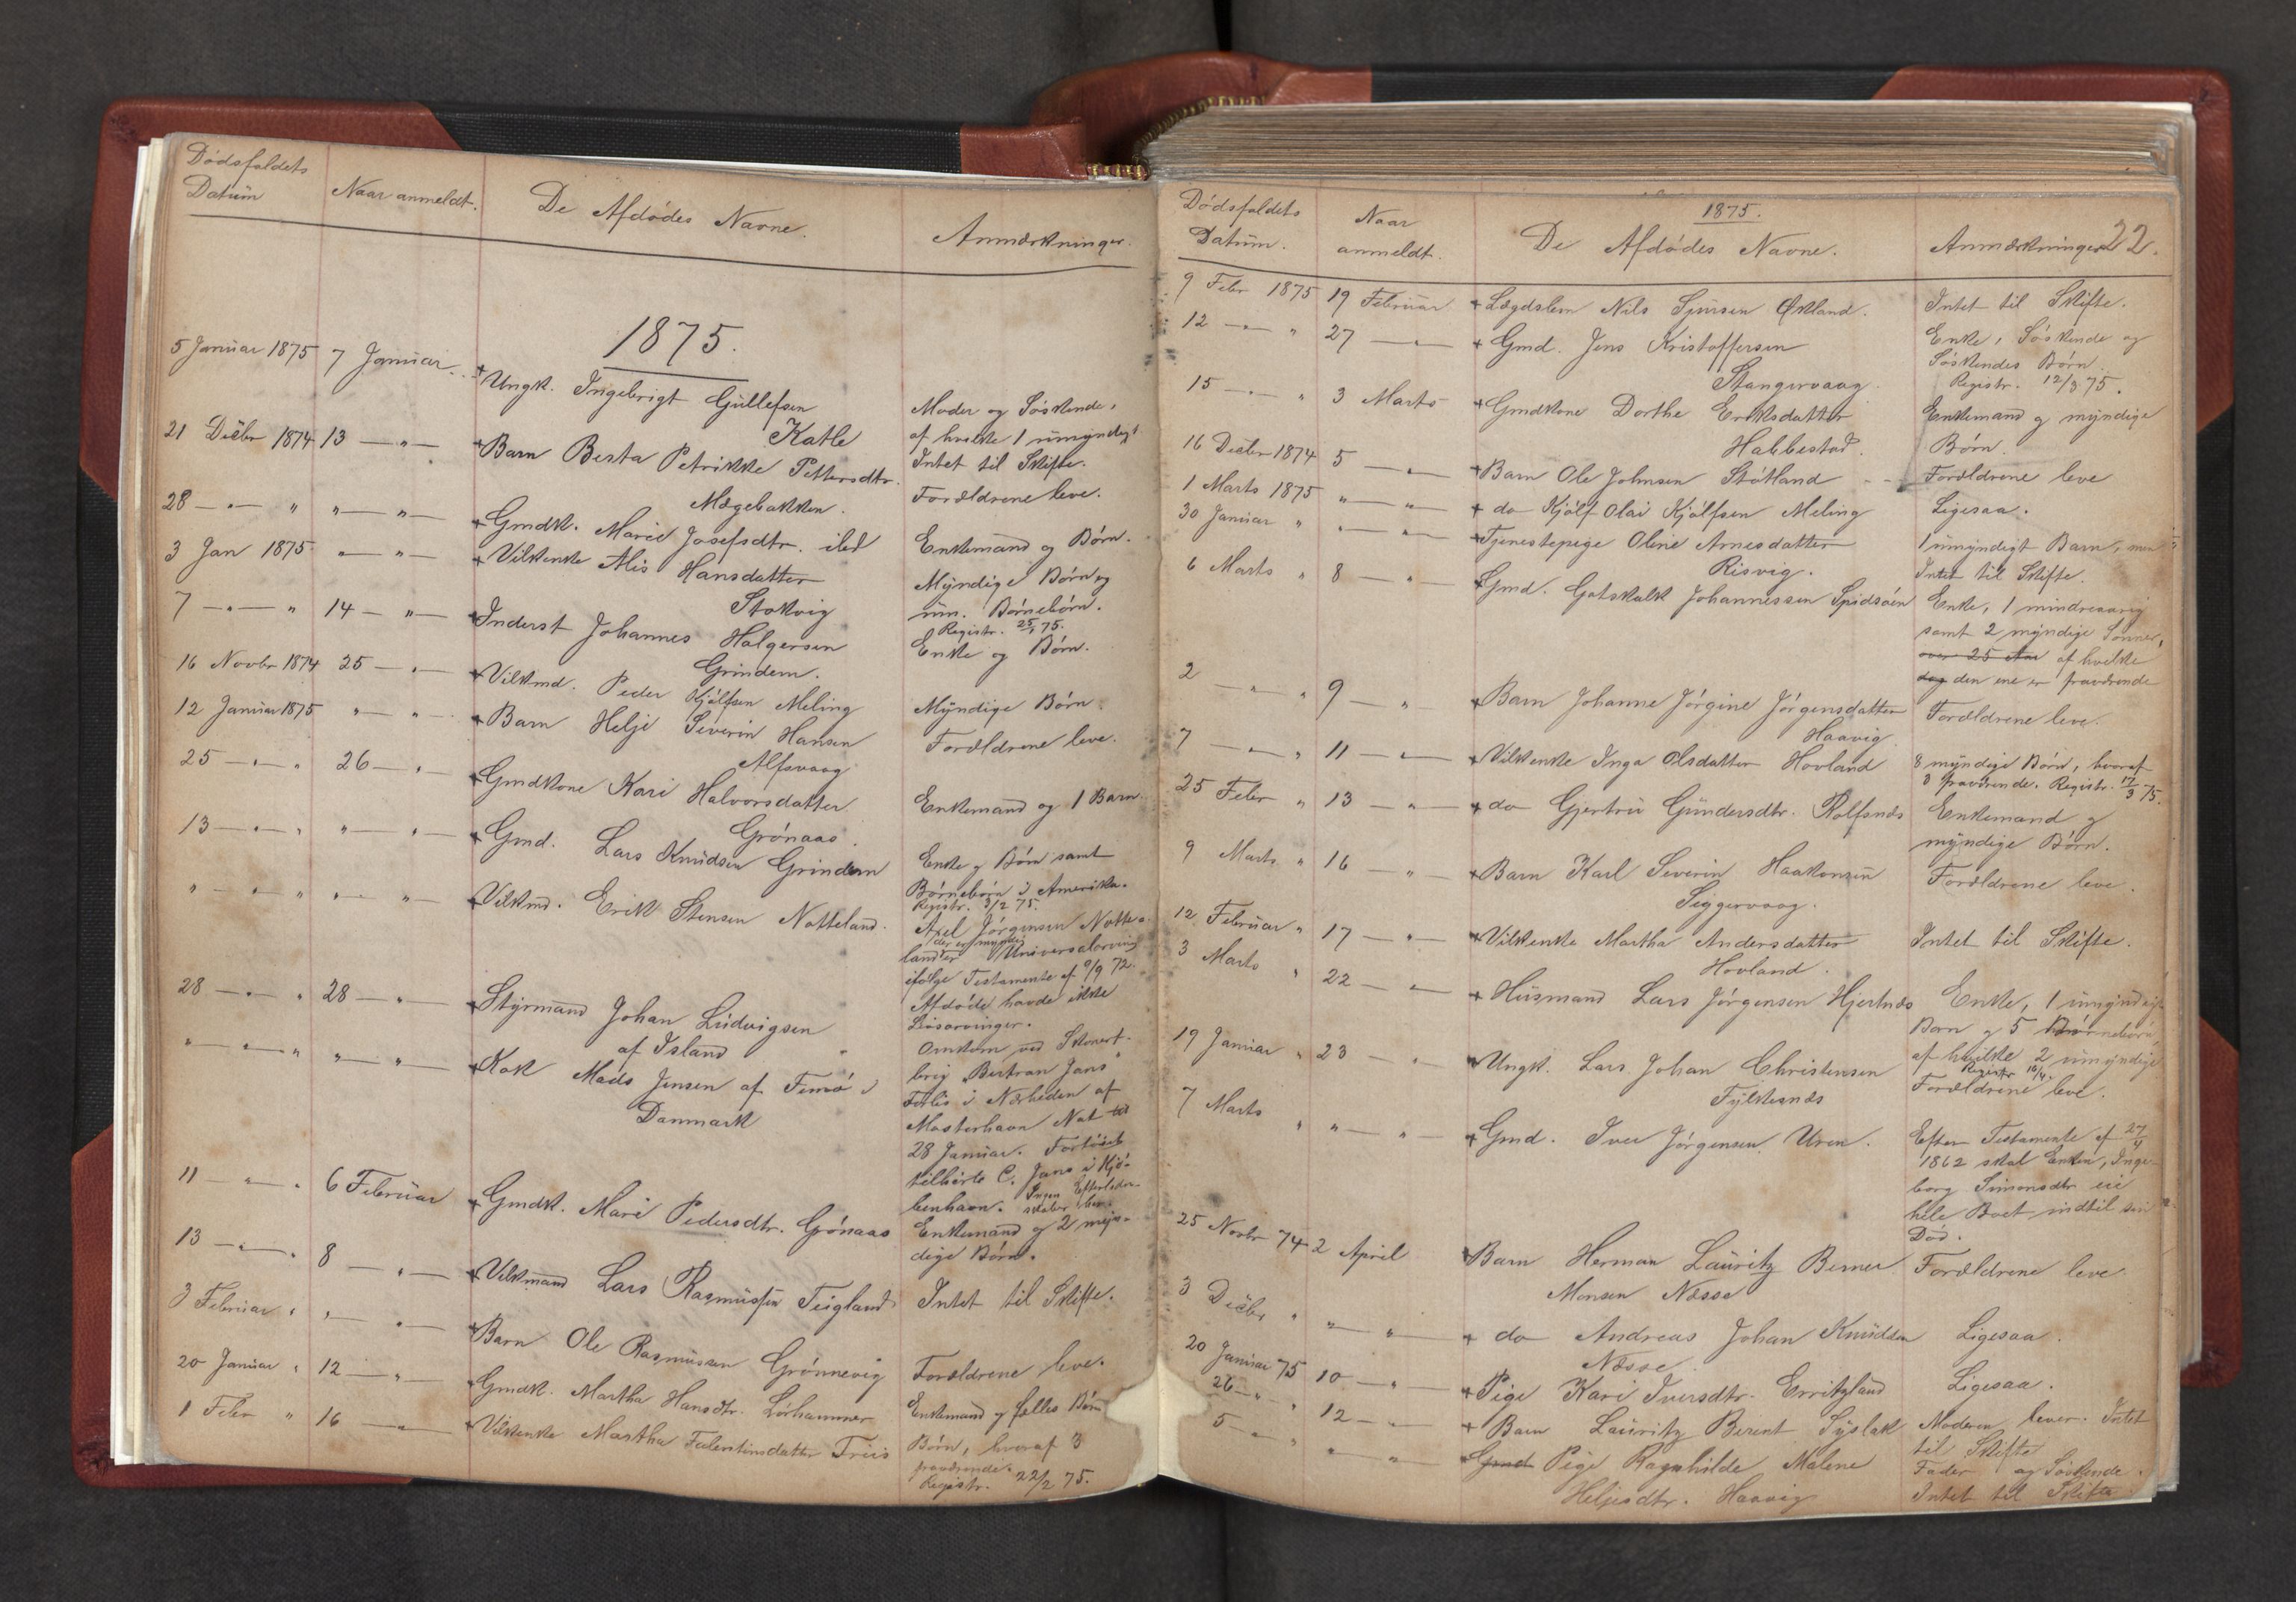 Dødsfaldets
Datum
Naar anmeldt.
De Afdødes Navne.
Anmærkninger.
1875.
5 Januar 1875 7 Januar. Ungk. Ingebrigt Gullefsen
Katle
Moder og Søskende,
af hvilke 1 umyndigt
Intet til Skifte.
21 Decbr 1874 13 — " — Barn Berta Petrikke Pettersdtr.
Mægebakken.
Forældrene leve.
28 — " — " " — " — Gmdk. Marie Josefsdtr. ibd
Enkemand og Børn.
3 Jan 1875 " — " — Vilkenke Alis Hansdatter
Stokvig
Myndige Børn og
um. Børnebørn.
Registr. 25/1 75.
7 — " — " 14 — " — Inderst Johannes Halgersen
Grindem.
Enke og Børn.
16 Novbr 1874 25 — " — Vilkmd. Peder Kjølfsen Meling
Myndige Børn.
12 Januar 1875 " — " — Barn Helje Severin Hansen
Alfsvaag
Forældrene leve.
25 — " — " 26 — " — Gmdkone Kari Halvorsdatter
Grønaas.
Enkemand og 1 Barn
13 — " — " " — " — Gmd. Lars Knudsen Grindem
Enke og Børn samt
Børnebørn i Amerika.
Registr. 3/2 75.
" — " — " " — " — Vilkmd. Erik Stensen Notteland.
Axel Jørgensen Notte-
der er myndig
land er Universalarving
ifølge Testamente af 9/9 72.
Afdøde havde ikke
Livsarvinger.
28 — " — " 28 — " — Styrmand Johan Ludvigsen
af Island
" — " — " " — " — Kok Mads Jensen af Femø i
Danmark
Omkom ved Skonert-
brig "Bertran Jans"
Forlis i Nærheden af
Mosterhavn Nat til
28 Januar. Fartøiet
tilhørte C. Jans i Kjø-
benhavn. Ingen Efterladen-
skaber
11 — " — " 6 Februar Gmdk. Mari Pedersdtr. Grønaas
Enkemand og 2 myn-
dige Børn.
13 — " — " 8 — " — Vilkmand Lars Rasmussen Teigland
Intet til Skifte.
3 Februar " " — " — Barn Ole Rasmussen Grønnevig
Forældrene leve.
20 Januar " 12 — " — Gmdk. Martha Hansdtr. Lørhammer
Enkemand og fælles Børn
1 Febr " 16 — " — Vilkenke Martha Falentinsdatter Friis
Børn, hvoraf 3
fraværende.
Registr. 22/2 75.
Dødsfaldets
Datum.
Naar
anmeldt.
1875.
De Afdødes Navne.
Anmærkninger
22.
9 Febr 1875 19 Februar Lægdslem Nils Sjursen Økland.
Intet til Skifte.
12 — " — " 27 — " — Gmd. Jens Kristoffersen
Stangervaag.
Enke, Søskende og
Søskendes Børn.
Registr. 12/3 75.
15 — " — " 3 Marts Gmdkone Dorthe Eriksdatter
Habbestad.
Enkemand og myndige
Børn.
16 Decbr 1874 5 — " — Barn Ole Johnsen Støtland
Forældrene leve
1 Marts 1875 " — " — do Kjølf Olai Kjølfsen Meling
Ligesaa.
30 Januar " " — " — Tjenestepige Oline Arnesdatter
Risvig.
1 umyndigt Barn, men
Intet til Skifte.
6 Marts " 8 — " — Gmd. Gotskalk Johannessen Spidsøen
Enke, 1 mindreaarig
samt 2 myndige Sønner,
over 25 Aar af hvilke
dog den ene er fraværende
2 — " — " 9 — " — Barn Johanne Jørgine Jørgensdatter
Haavig
Forældrene leve.
7 — " — " 11 — " — Vilkenke Inga Olsdatter Hovland
8 myndige Børn, hvoraf
3 fraværende. Registr. 17/3 75.
25 Febr " 13 — " — do Gjertru Gundersdtr. Rolfsnes
Enkemand og
myndige Børn.
9 Marts " 16 — " — Barn Karl Severin Haakonsen
Siggervaag.
Forældrene leve.
12 Februar " 17 — " — Vilkenke Martha Andersdatter
Hovland.
Intet til Skifte.
3 Marts " 22 — " — Husmand Lars Jørgensen Hjertnæs
Enke, 1 umyndigt
Barn og 5 Børnebørn,
af hvilke 2 umyndige
Registr 16/4.
19 Januar " 23 — " — Ungk. Lars Johan Christensen
Fylkesnæs
Forældrene leve.
7 Marts " " — " — Gmd. Iver Jørgensen Uren.
Efter Testamente af 27/4
1862 skal Enken, Inge-
borg Simonsdtr. eie
hele Boet indtil sin
Død.
25 Novbr 74 2 April Barn Herman Lauritz Berner
Monsen Næsse
Forældrene leve.
3 Decbr " " — " — do Andreas Johan Knudsen
Næsse.
Ligesaa.
20 Januar 75 10 — " — Pige Kari Iversdtr. Erritzland
Ligesaa.
26 — " — " 12 — " — Barn Lauritz Berent Syslak
Moderen lever. Intet
til Skifte
5 — " — " " — " — Gmd Pige Ragnhilde Malene
Heljesdtr. Haavig
Fader og Søskende.
Intet til Skifte